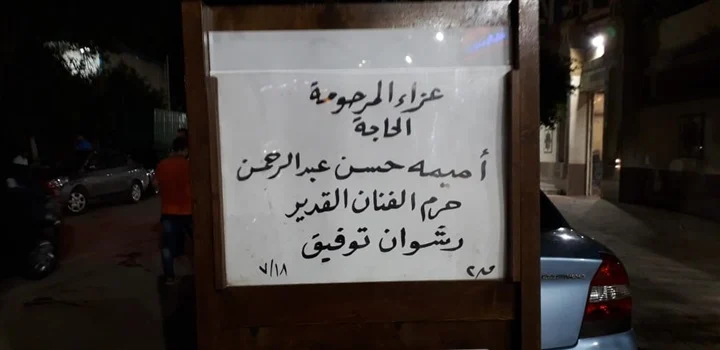 عزاء المرحومة
الحاجة
أميمه حسن عبدالرحمن
حرم الفنان القدير
رشوان توفيق
٧/١٨